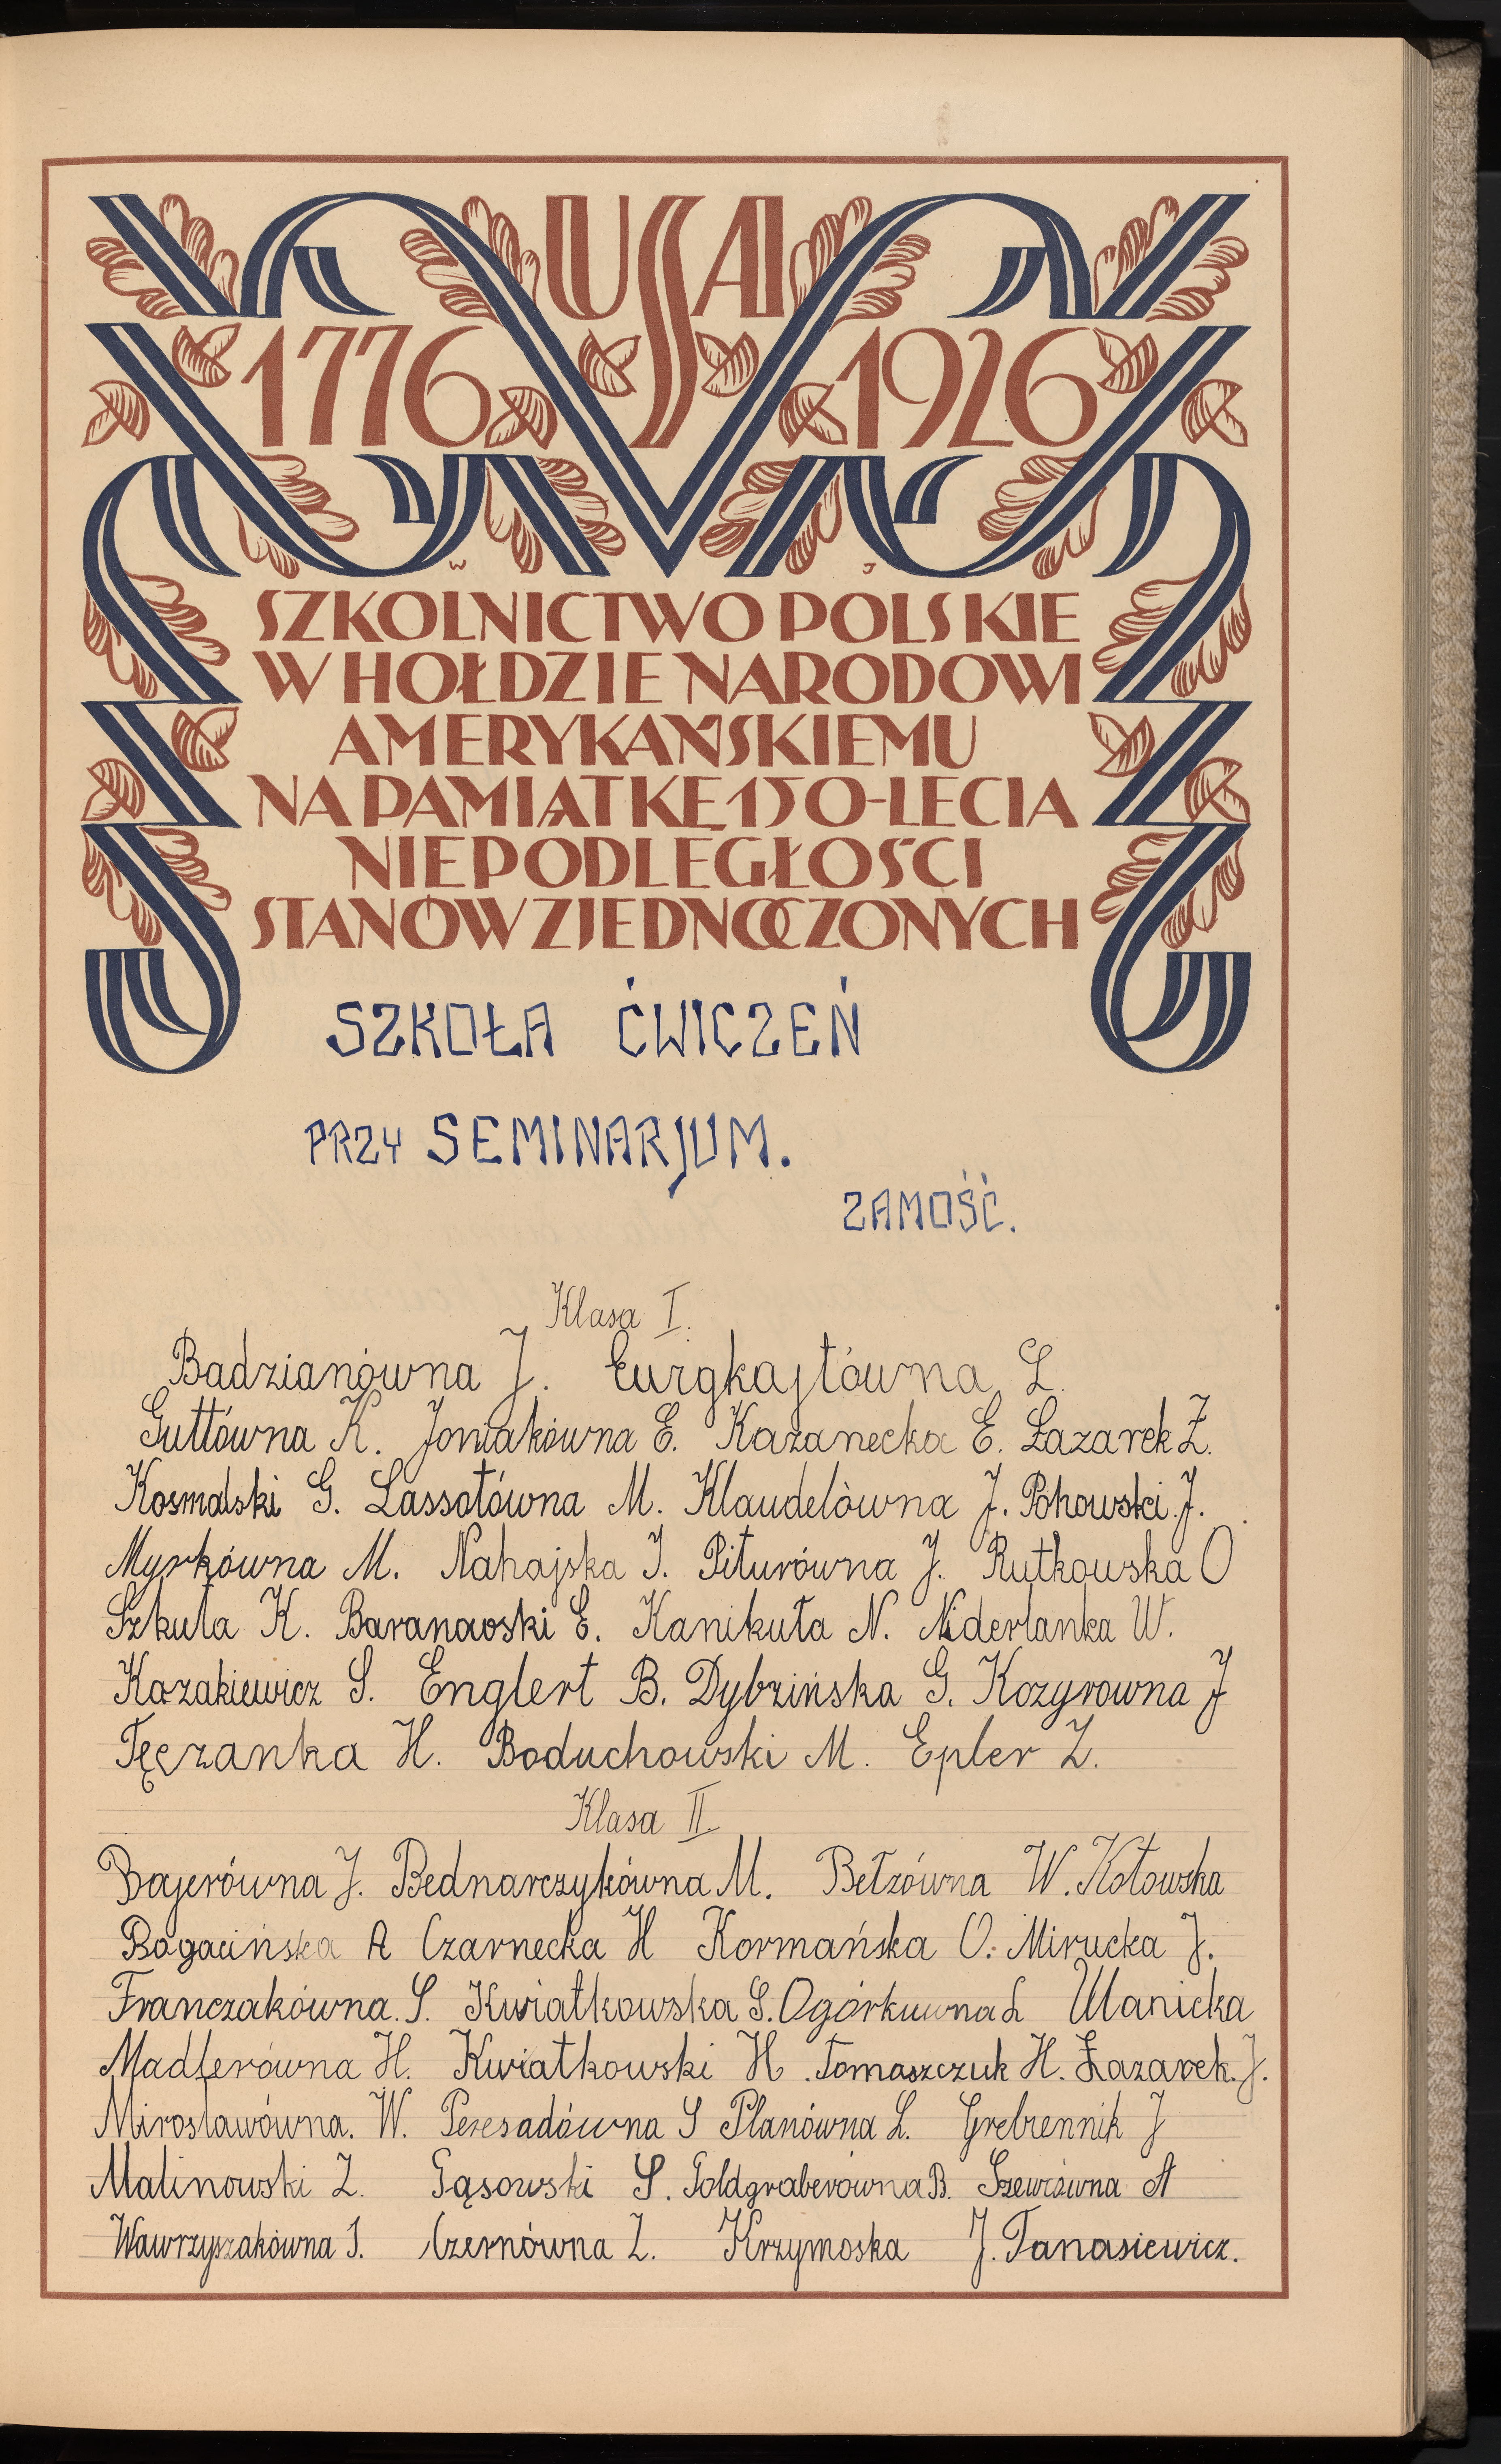 USA
1776 1926
W J
SZKOLNICTWO POLSKIE
W HOŁDZIE NARODOWI
AMERYKAŃSKIEMU
NA PAMIĄTKĘ 150-LECIA
NIEPODLEGŁOŚCI
STANÓW ZJEDNOCZONYCH
SZKOŁA ĆWICZEŃ
PRZY SEMINARJUM.
ZAMOŚĆ.
Klasa I.
Badzianówna J. L.
Guttówna K. Joniakówna E. Kazanecka E. Łazarek Z.
Kosmalski G. Lassotówna M. Klaudelówna J. Pohowski J.
Myrkówna M. Nahajska J. Piturówna J. Rutkowska O
Szkuta K. Baranowski E. Kanikuła N. Niderlanka W.
Kazakiewicz S. Englert B. Dybzińska G. Kozyrowna J
Tęczanka H. Boduchowski M. Epler Z.
Klasa II.
Bajerówna J. Bednarczykówna M. Bełzówna W. Kotowska
Bogacińska A Czarnecka H Kormańska O. Mirucka J.
Franczakówna. S. Kwiatkowska S. Ogórkuwna L Ulanicka
Madlerówna H. Kwiatkowski H. Tomaszczuk H. Łazarek. J.
Mirosławówna. W. Peresadówna S Planówna L. Grebiennik J
Malinowski Z. Gąsowski S. Goldgraberówna B. Szewcówna A
Wawrzyszakówna J. Czernówna Z. Krzymoska J. Tanasiewicz.